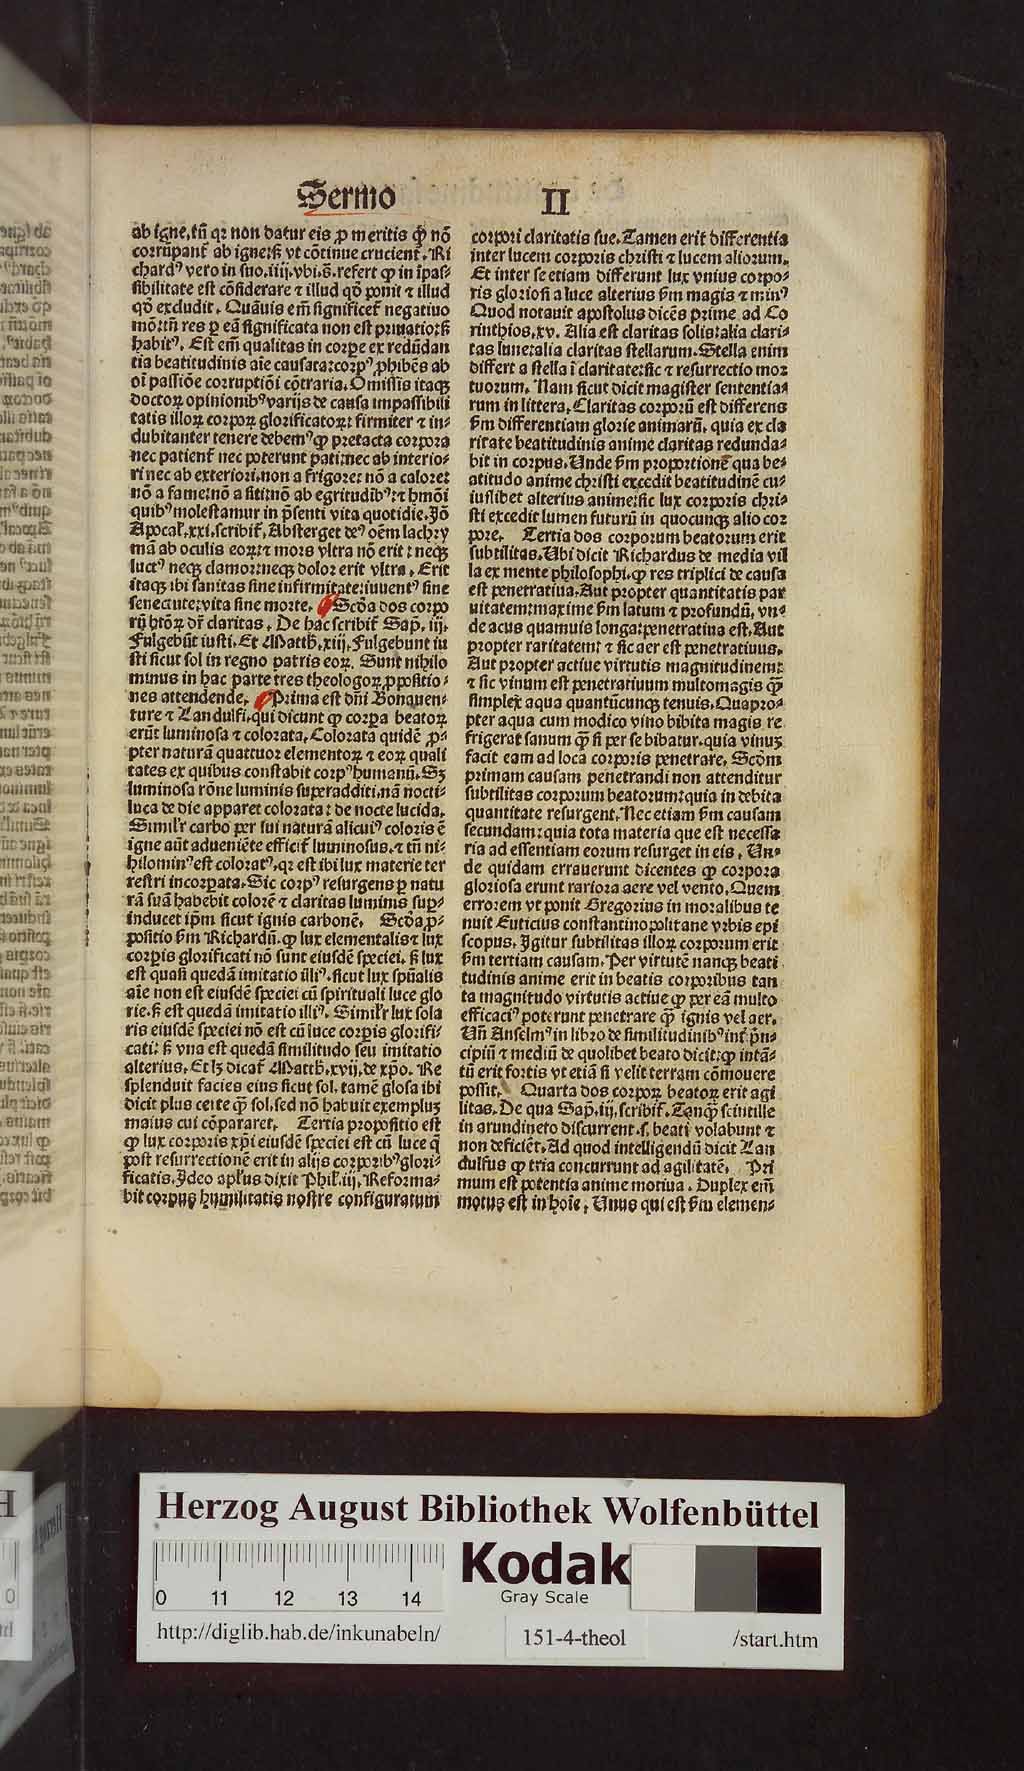 Sermo II
ab igne, tñ qꝛ non datur eis ꝓ meritis ꝙ nõ
corrũpant᷑ ab igne: ſꝫ vt cõtinue crucient᷑. Ri
chardꝰ vero in ſuo .iiij. vbi .s̃. refert ꝙ in ĩpaſ⸗
ſibilitate eſt cõſiderare ⁊ illud qđ ponit ⁊ illud
qđ excludit. Quãuis em̃ ſignificet᷑ negatiuo
mõ: tñ res ꝑ eã ſignificata non eſt priuatio: ſꝫ
habitꝰ. Eſt em̃ qualitas in corꝑe ex redũdan
tia beatitudinis aĩe cauſata: corpꝰ ꝓhibẽs ab
oĩ paſſiõe corruptiõi cõtraria. Omiſſis itaqꝫ
doctoꝝ opinionibꝰ varijs de cauſa impaſſibili
tatis illoꝝ corpoꝝ glorificatoꝝ: firmiter ⁊ in⸗
dubitanter tenere debemꝰ ꝙ pretacta corpora
nec patient᷑ nec poterunt pati: nec ab interio⸗
ri nec ab exteriori. non a frigore: nõ a calore:
nõ a fame: nõ a ſiti: nõ ab egritudibꝰ: ⁊ hmõi
quibꝰ moleſtamur in p̃ſenti vita quotidie. Jõ
Apocal̓. xxi. ſcribit᷑. Abſterget deꝰ oẽm lachry
mã ab oculis eoꝝ: ⁊ mors vltra nõ erit: neqꝫ
luctꝰ neqꝫ clamor: neqꝫ dolor erit vltra. Erit
itaqꝫ ibi ſanitas ſine infirmitate: iuuent᷑ ſine
ſenectute: vita ſine morte. Scđa dos corpo
rũ btõꝝ dr̃ claritas. De hac ſcribit᷑ Sap̃. iij.
Fulgebũt iuſti. Et Matth̓. xiij. Fulgebunt iu
ſti ſicut ſol in regno patris eoꝝ. Sunt nihilo
minus in hac parte tres theologoꝝ ꝓpoſitio⸗
nes attendende. Prima eſt dñi Bonauen⸗
ture ⁊ Landulfi. qui dicunt ꝙ corꝑa beatoꝝ
erũt luminoſa ⁊ colorata. Colorata quidẽ ꝓ⸗
pter naturã quattuor elementoꝝ ⁊ eoꝝ quali
tates ex quibus conſtabit corpꝰ humanũ. Sꝫ
luminoſa rõne luminis ſuperadditi. nã nocti⸗
luca de die apparet colorata: de nocte lucida.
Simil̓r carbo per ſui naturã alicuiꝰ coloris ẽ
igne aũt adueniẽte efficit᷑ luminoſus. ⁊ tñ ni⸗
hilominꝰ eſt coloratꝰ. qꝛ eſt ibi lux materie ter
reſtri incorꝑata. Sic corpꝰ reſurgens ꝑ natu
rã ſuã habebit colorẽ ⁊ claritas luminis ſuꝑ⸗
inducet ip̃m ſicut ignis carbonẽ. Scđa ꝓ⸗
poſitio ẜm Richardũ. ꝙ lux elementalis ⁊ lux
corꝑis glorificati nõ ſunt eiuſdẽ ſpeciei. ſꝫ lux
eſt quaſi quedã imitatio illiꝰ. ſicut lux ſpũalis
aĩe non eſt eiuſdẽ ſpeciei cũ ſpirituali luce glo
rie. ſꝫ eſt quedã imitatio illiꝰ. Simil̓r lux ſola
ris eiuſdẽ ſpeciei nõ eſt cũ luce corꝑis glorifi⸗
cati: ſꝫ vna eſt quedã ſimilitudo ſeu imitatio
alterius. Et lꝫ dicat᷑ Matth̓. xvij. de xp̃o. Re
ſplenduit facies eius ſicut ſol. tamẽ gloſa ibi
dicit plus certe ꝙ̃ ſol. ſed nõ habuit exemplum
maius cui cõpararet᷑. Tertia propoſitio eſt
ꝙ lux corporis xp̃i eiuſdẽ ſpeciei eſt cũ luce q̃
poſt reſurrectionẽ erit in alijs corporibꝰ glori⸗
ficatis. Jdeo apl̓us dixit Phil̓. iij. Reforma⸗
bit corpus humilitatis noſtre configuratum
corpori claritatis ſue. Tamen erit differentia
inter lucem corporis chriſti ⁊ lucem aliorum.
Et inter ſe etiam differunt lux vnius corpo⸗
ris glorioſi a luce alterius ẜm magis ⁊ minꝰ
Quod notauit apoſtolus dicẽs prime ad Co
rinthios. xv. Alia eſt claritas ſolis: alia clari⸗
tas lune: alia claritas ſtellarum. Stella enim
differt a ſtella ĩ claritate: ſic ⁊ reſurrectio mor
tuorum. Nam ſicut dicit magiſter ſententia⸗
rum in littera. Claritas corporũ eſt differens
ẜm differentiam glorie animarũ. quia ex cla
ritate beatitudinis anime claritas redunda⸗
bit in corpus. Unde ẜm proportionẽ qua be⸗
atitudo anime chriſti excedit beatitudinẽ cu⸗
iuſlibet alterius anime: ſic lux corporis chri⸗
ſti excedit lumen futurũ in quocunqꝫ alio cor
pore. Tertia dos corporum beatorum erit
ſubtilitas. Ubi dicit Richardus de media vil
la ex mente philoſophi. ꝙ res triplici de cauſa
eſt penetratiua. Aut propter quantitatis par
uitatem: maxime ẜm latum ⁊ profundũ, vn⸗
de acus quamuis longa: penetratiua eſt. Aut
propter raritatem: ⁊ ſic aer eſt penetratiuus.
Aut propter actiue virtutis magnitudinem:
⁊ ſic vinum eſt penetratiuum multomagis ꝙ̃
ſimplex aqua quantũcunqꝫ tenuis. Quapro⸗
pter aqua cum modico vino bibita magis re
frigerat ſanum ꝙ̃ ſi per ſe bibatur. quia vinum
facit eam ad loca corporis penetrare. Scđm
primam cauſam penetrandi non attenditur
ſubtilitas corporum beatorum: quia in debita
quantitate reſurgent. Nec etiam ẜm cauſam
ſecundam: quia tota materia que eſt neceſſa
ria ad eſſentiam eorum reſurget in eis. Un⸗
de quidam errauerunt dicentes ꝙ corpora
glorioſa erunt rariora aere vel vento. Quem
errorem vt ponit Gregorius in moralibus te
nuit Euticius conſtantinopolitane vrbis epi
ſcopus. Jgitur ſubtilitas illoꝝ corporum erit
ẜm tertiam cauſam. Per virtutẽ nanqꝫ beati
tudinis anime erit in beatis corporibus tan
ta magnitudo virtutis actiue ꝙ per eã multo
efficaciꝰ poterunt penetrare ꝙ̃ ignis vel aer.
Uñ Anſelmꝰ in libro de ſimilitudinibꝰ int᷑ p̃n⸗
cipiũ ⁊ mediũ de quolibet beato dicit: ꝙ intã⸗
tũ erit fortis vt etiã ſi velit terram cõmouere
poſſit. Quarta dos corpoꝝ beatoꝝ erit agi
litas. De qua Sap̃. iij. ſcribit᷑. Tanꝙ̃ ſcintille
in arundineto diſcurrent .ſ. beati volabunt ⁊
non deficiẽt. Ad quod intelligendũ dicit Lan
dulfus ꝙ tria concurrunt ad agilitatẽ. Pri
mum eſt potentia anime motiua. Duplex em̃
motus eſt in hoĩe. Unus qui eſt ẜm elemen⸗
Herzog August Bibliothek Wolfenbüttel
0 11 12 13 14
Kodak
Gray Scale
http://diglib.hab.de/inkunabeln/
151-4-theol
/start.htm